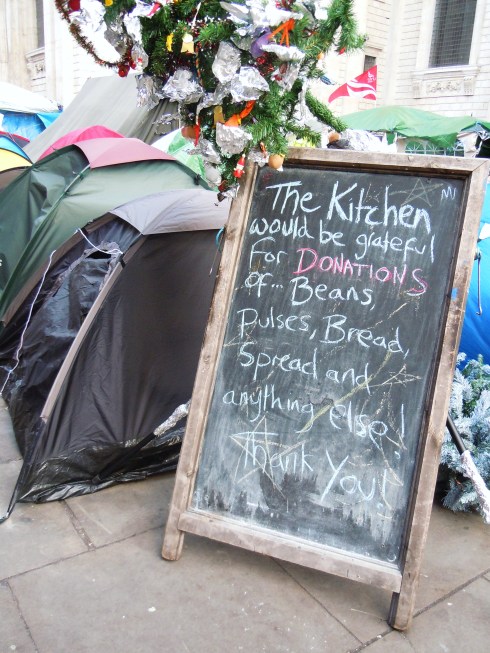 The Kitchen
would be grateful
For DONATIONS
of... Beans,
Pulses, Bread,
Spread and
anything else!
Thank You!